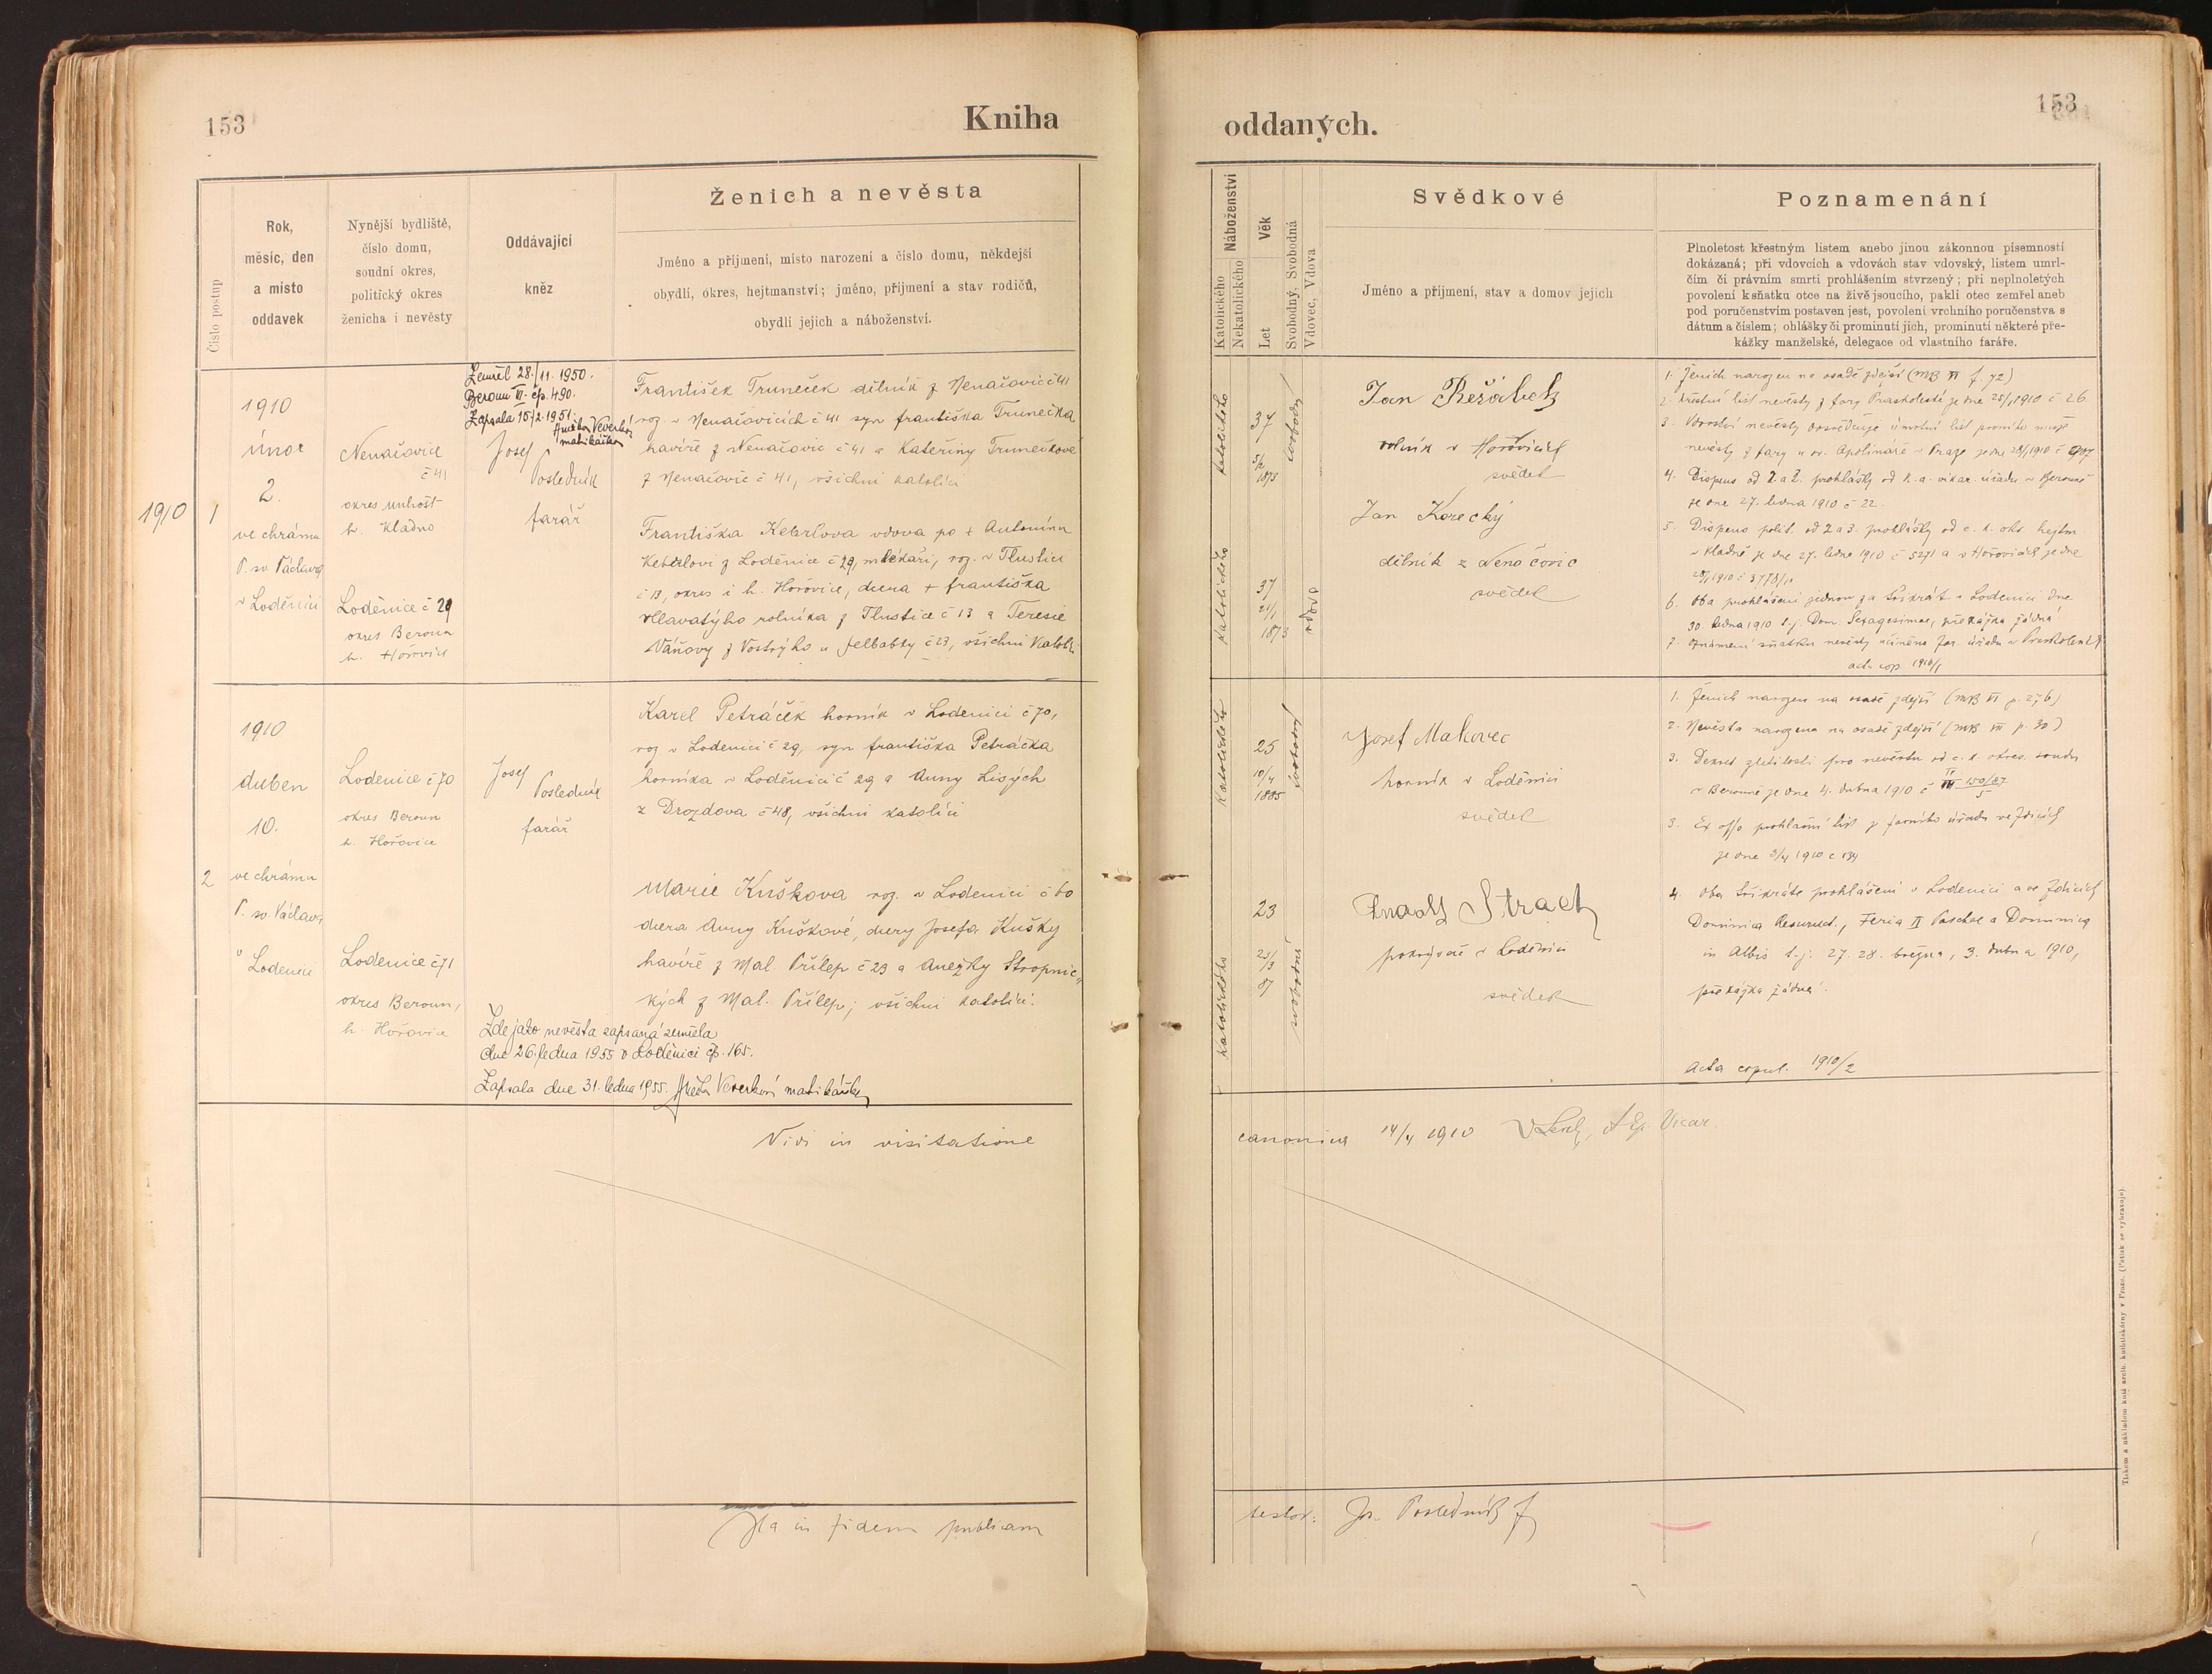 153
Kniha
oddaných.
153
Číslo postup
Rok,
měsíc, den
a místo
oddavek
Nynější bydliště,
číslo domu,
soudní okres,
politický okres
ženicha i nevěsty
Oddávající
kněz
Ženich a nevěsta
Jméno a příjmení, místo narození a číslo domu, někdejší
obydlí, okres, hejtmanství; jméno, příjmení a stav rodičů,
obydlí jejich a náboženství.
Náboženství
Katolického
Nekatolického
Věk
Let
Svobodný, Svobodná
Vdovec, Vdova
Svědkové
Jméno a příjmení, stav a domov jejich
Poznamenání
Plnoletost křestným listem anebo jinou zákonnou písemností
dokázaná; při vdovcích a vdovách stav vdovský, listem umrl-
čím či právním smrti prohlášením stvrzený; při neplnoletých
povolení k sňatku otce na živě jsoucího, pakli otec zemřel aneb
pod poručenstvím postaven jest, povolení vrchního poručenstva s
dátum a číslem; ohlášky či prominutí jich, prominutí některé pře-
kážky manželské, delegace od vlastního faráře.
1910
1
1910
únor
2.
ve chrámu
P. sv Václava
v Loděnici
Nenačovice
č 41
okres Unhošt
h. Kladno
Loděnice č 29
okres Beroun
h. Hořovice
Zemřel 28./11. 1950.
Beroun II. čp. 490.
Zapsala 15./2. 1951.
Anežka Veverková
matrikářka
Josef
Posledník
farář
František Truneček dělník z Nenačovic č 41
roz. v Nenačovicích č 41 syn Františka Trunečka
havíře z Nenačovic č 41 a Kateřiny Trunečkové
z Nenačovic č 41, všichni katolíci
Františka Keberlova vdova po + Antonínu
Keberlovi z Loděnice č 29, mlékaři, roz. v Tlustici
č 13, okres i h. Hořovice, dcera + Františka
Hlavatýho rolníka z Tlustice č 13 a Teresie
Váňovy z Vostrýho u Jelbabky č 23, všichni katolíci
katolického
37
5/2
1873
svobodný
katolického
37
21/1
1873
vdova
Jan Řeřábek
rolník v Hořovicích
svědek
Jan Korecký
dělník z Nenačovic
svědek
1. Ženich narozen na osadě zdejší (MB VI f. 72)
2. Křestní list nevěsty z fary Praskoleské je dne 25/1 1910 č 26
3. Vdovství nevěsty dosvědčuje úmrtní list prvního muže
nevěsty z fary u sv. Apolináře v Praze je dne 28/1 1910 č 907
4. Dispens od 2. a 3. prohlášky od k. a. vikar. úřadu v Berouně
je dne 27. ledna 1910 č 22.
5. Dispens polit. od 2 a 3. prohlášky od c. k. okr. hejtm.
v Kladně je dne 27. ledna 1910 č 5271 a v Hořovicích je dne
28/1 1910 č 3778/10
6. Oba prohlášeni jednou za třikrát v Lodenici dne
30. ledna 1910 t. j. Dom. Sexagesimae, překážka žádná
7. Oznámení sňatku nevěsty učiněno far. úřadu v Praskolesích
acta cop. 1910/1
2
1910
duben
10.
ve chrámu
P. sv Václava
v Lodenici
Lodenice č 70
okres Beroun
h. Hořovice
Lodenice č 71
okres Beroun,
h. Hořovice
Josef
Posledník
farář
Karel Petráček horník v Lodenici č 70,
roz v Lodenici č 29, syn Františka Petráčka
horníka v Loděnici č 29 a Anny Lisých
z Drozdova č 48, všichni katolíci
Marie Kuškova roz. v Lodenici č 60
dcera Anny Kuškové, dcery Josefa Kušky
havíře z Mal. Přílep č 23 a Anežky Stropnic-
kých z Mal. Přílep; všichni katolíci.
Zde jako nevěsta zapsaná zemřela
dne 26. ledna 1955 v Loděnici čp. 165.
Zapsala dne 31. ledna 1955. Anežka Veverková matrikářka
katolického
25
10/4
1885
svobodný
katolického
23
23/3
87
svobodná
Josef Makovec
horník v Loděnici
svědek
Rudolf Strach
pokrývač v Loděnici
svědek
1. Ženich narozen na osadě zdejší (MB VI p. 276)
2. Nevěsta narozena na osadě zdejší (MB VII p. 30)
3. Dekret zletilosti pro nevěstu od c. k. okres. soudu
v Berouně je dne 4. dubna 1910 č
3. Ex offo prohlašní list z farního úřadu ve Zdicích
je dne 3/4 1910 č 134
4. Oba třikráte prohlášeni v Lodenici a ve Zdicích
Dominica Resurrect., Feria II Paschae a Dominica
in Albis t. j. 27. 28. března, 3. dubna 1910,
překážka žádná.
Acta copul. 1910/2
Vidi in visitatione
canonica 14/4 1910 Vicar.
Ita in fidem publicam
testor: Jos. Posledník f
Tiskem a nákladem kníž. arcib. knihtiskárny v Praze. (Patisk se vyhrazuje)